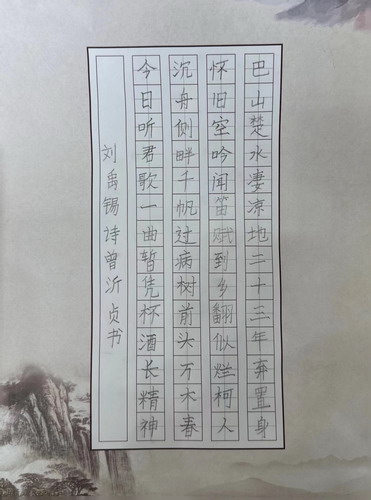 巴山楚水凄凉地二十三年弃置身
怀旧空吟闻笛赋到乡翻似烂柯人
沉舟侧畔千帆过病树前头万木春
今日听君歌一曲暂凭杯酒长精神
刘禹锡诗曾沂贞书